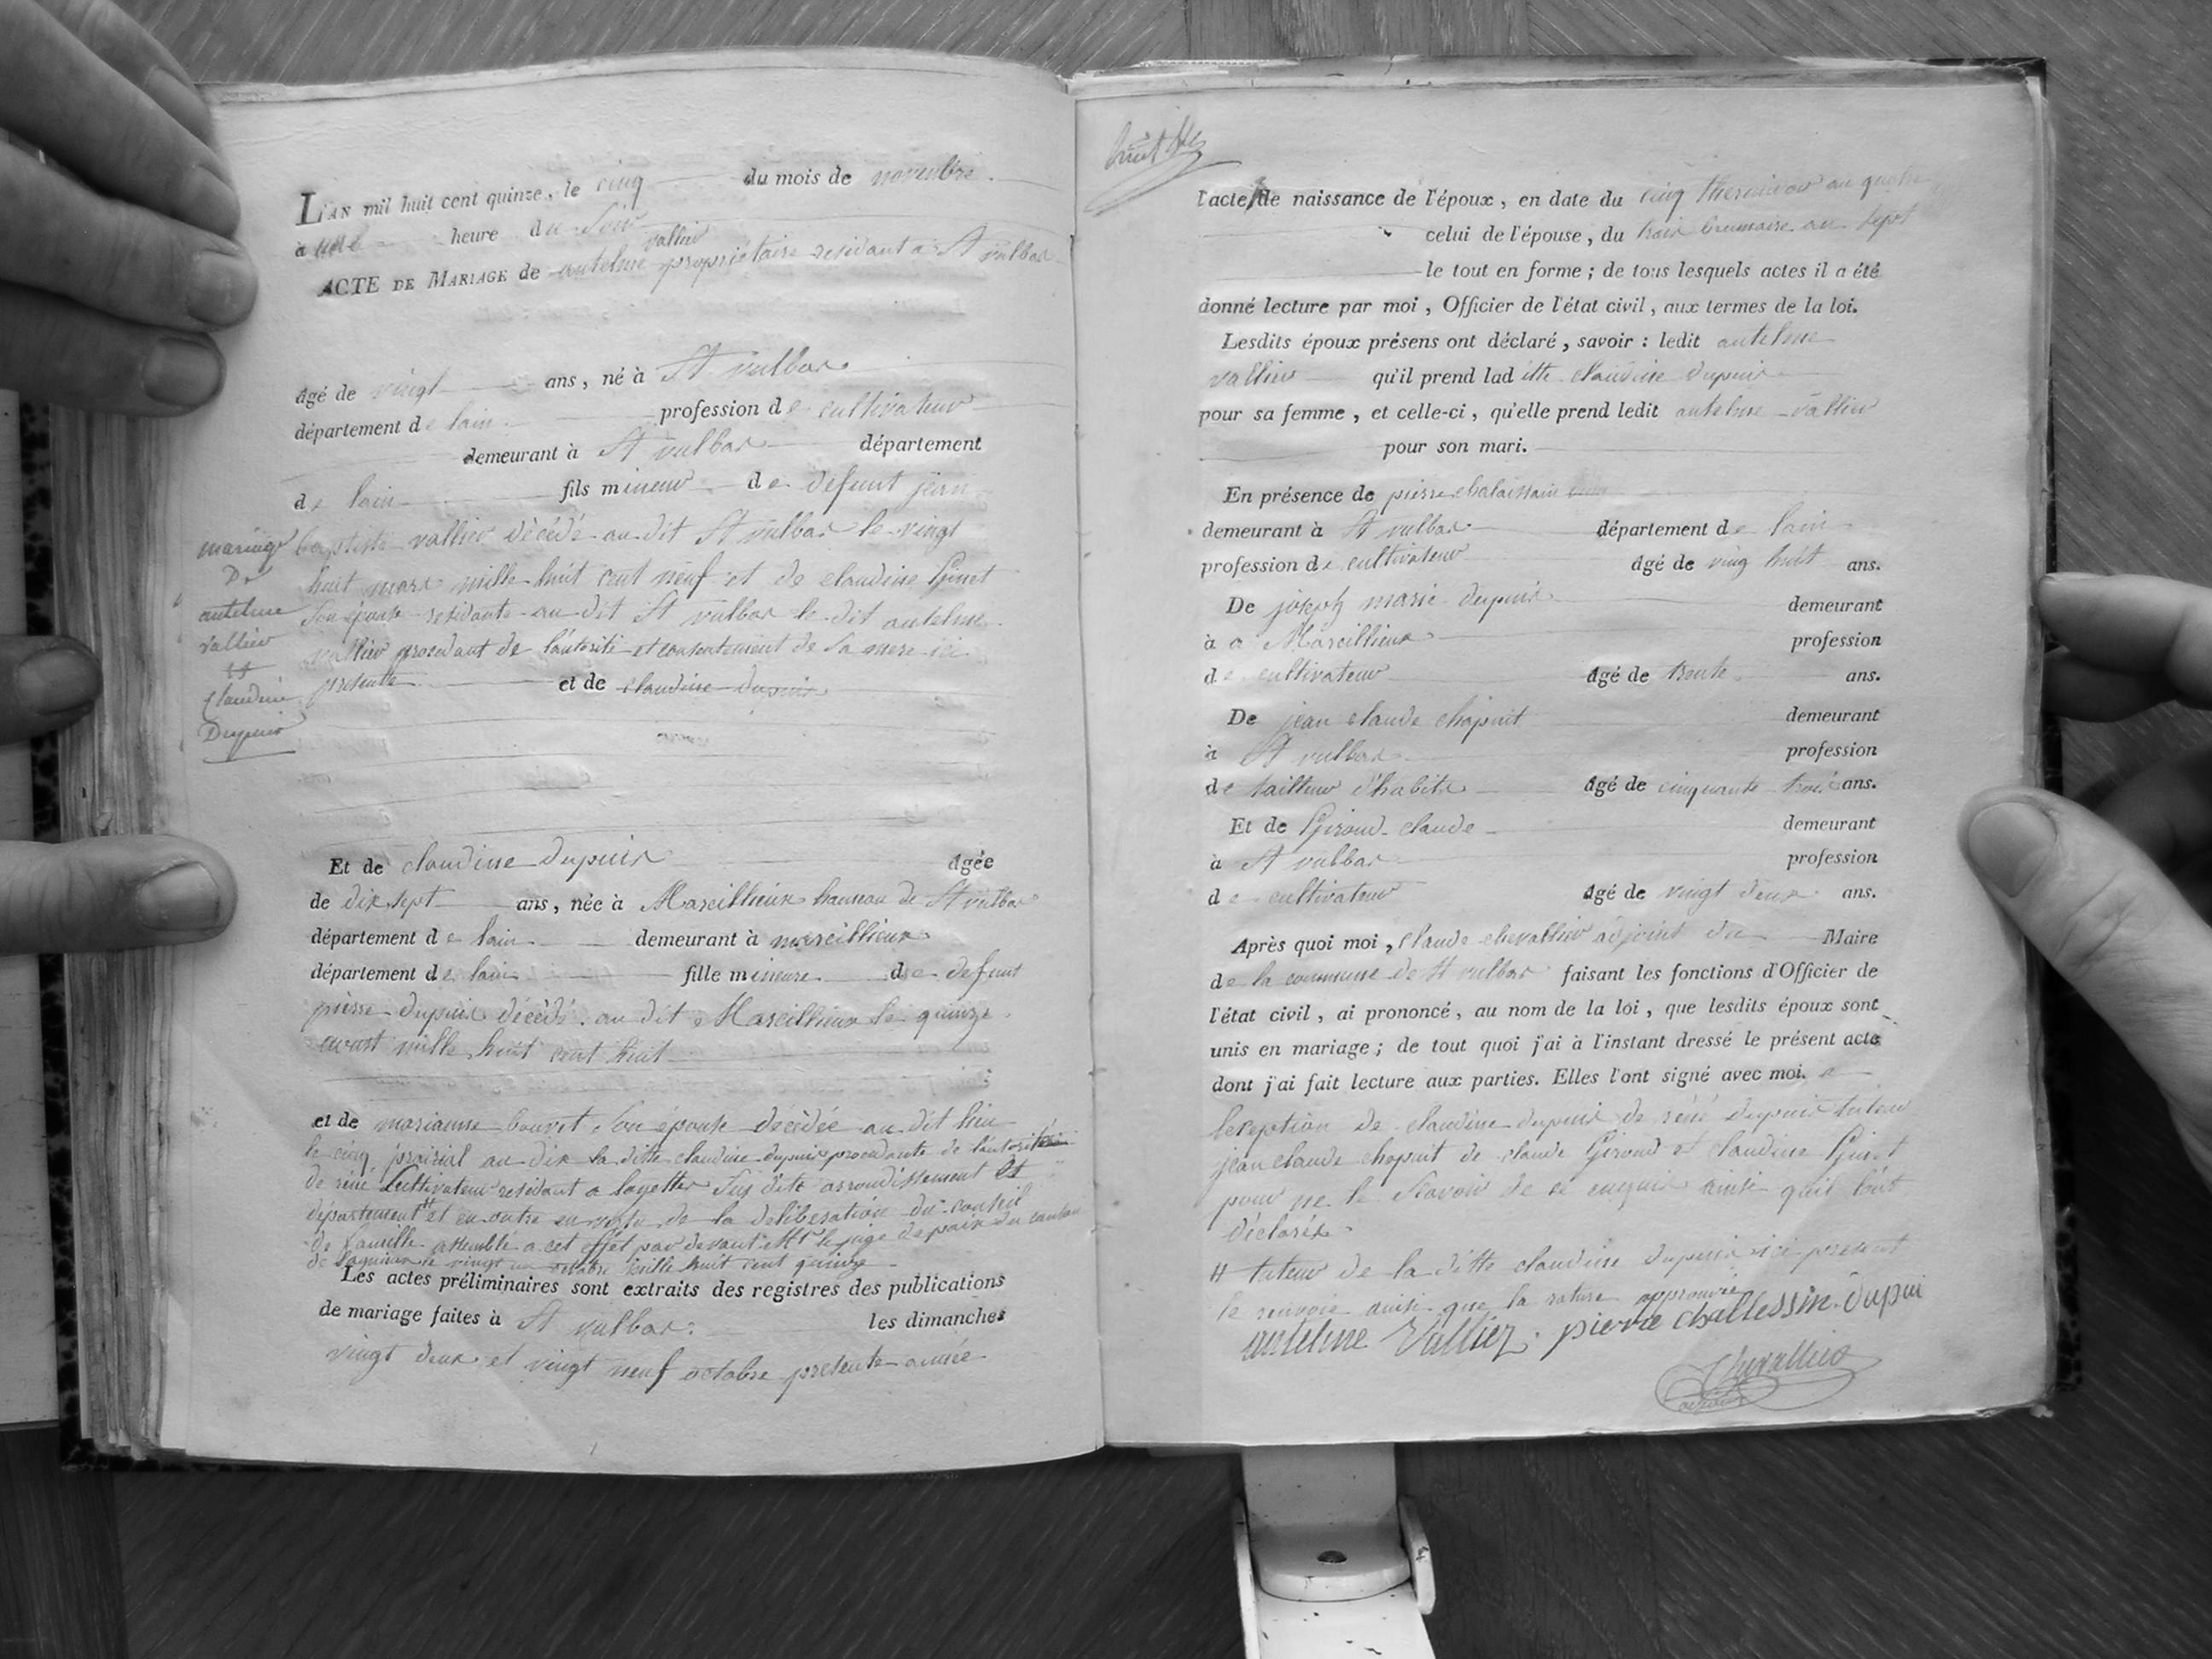 L'AN mil huit cent quinze, le cinq du mois de novembre
à une heure du soir
vallier
ACTE DE MARIAGE de antelme propriétaire residant a St vulbas
âgé de vingt ans, né à St vulbas
département de lain profession de cultivateur
demeurant à St vulbas département
de lain fils mineur de défunt jean
baptiste vallier décédé au dit St vulbas le vingt
huit mars mille huit cent neuf et de claudine Ginet
son épouse residante au dit St vulbas le dit antelme
vallier procedant de l'autorité et consentement de sa mere ici
presente et de claudine dupuis
mariage
De
antelme
vallier
et
Claudine
Dupuis
Et de claudine dupuis âgée
de dix sept ans, née à Marcillieux hameau de St vulbas
département de lain demeurant à marcillieux
département de lain fille mineure de defunt
pierre dupuis décédé au dit Marcillieux le quinze
avost mille huit cent huit
et de marianne bouvet son épouse décédée au dit lieu
le cinq prairial an dix la ditte claudine dupuis procedante de l'autorité
de réné Cultivateur residant a lagettes sus dite arrondissement et
département # et en outre en vertu de la deliberation du conseil
de famille assemblé a cet effet par devant Mr le juge de paix du canton
de lagnieu le vingt un octobre mille huit cent quinze
Les actes préliminaires sont extraits des registres des publications
de mariage faites à St vulbas les dimanches
vingt deux et vingt neuf octobre presente année
l'acte de naissance de l'époux, en date du cinq thermidor an quatre
celui de l'épouse, du trois brumaire an sept
le tout en forme ; de tous lesquels actes il a été
donné lecture par moi, Officier de l'état civil, aux termes de la loi.
Lesdits époux présens ont déclaré, savoir : ledit antelme
vallier qu'il prend laditte claudine dupuis
pour sa femme, et celle-ci, qu'elle prend ledit antelme vallier
pour son mari.
En présence de pierre chalaissain
demeurant à St vulbas département de lain
profession de cultivateur âgé de ving huit ans.
De joseph marie dupuis demeurant
à a Marcillieux profession
de cultivateur âgé de trente ans.
De jean claude chapuit demeurant
à St vulbas profession
de tailleur d'habits âgé de cinquante trois ans.
Et de Giroud claude demeurant
à St vulbas profession
de cultivateur âgé de vingt deux ans.
Après quoi moi, Claude chevallier adjoint du Maire
de la commune de St vulbas faisant les fonctions d'Officier de
l'état civil, ai prononcé, au nom de la loi, que lesdits époux sont
unis en mariage ; de tout quoi j'ai à l'instant dressé le présent acte
dont j'ai fait lecture aux parties. Elles l'ont signé avec moi. a
lexeption de claudine dupuis de réné dupuis tuteur
jean claude chapuit de claude Giroud et claudine Ginet
pour ne le scavoir de ce enquis ainsi quil lont
déclarés
# tuteur de la ditte claudine dupuis ici présent
le renvoie ainsi que la rature approuvée
antelme Vallier pierre challessin dupui
Chevallier
adjoint